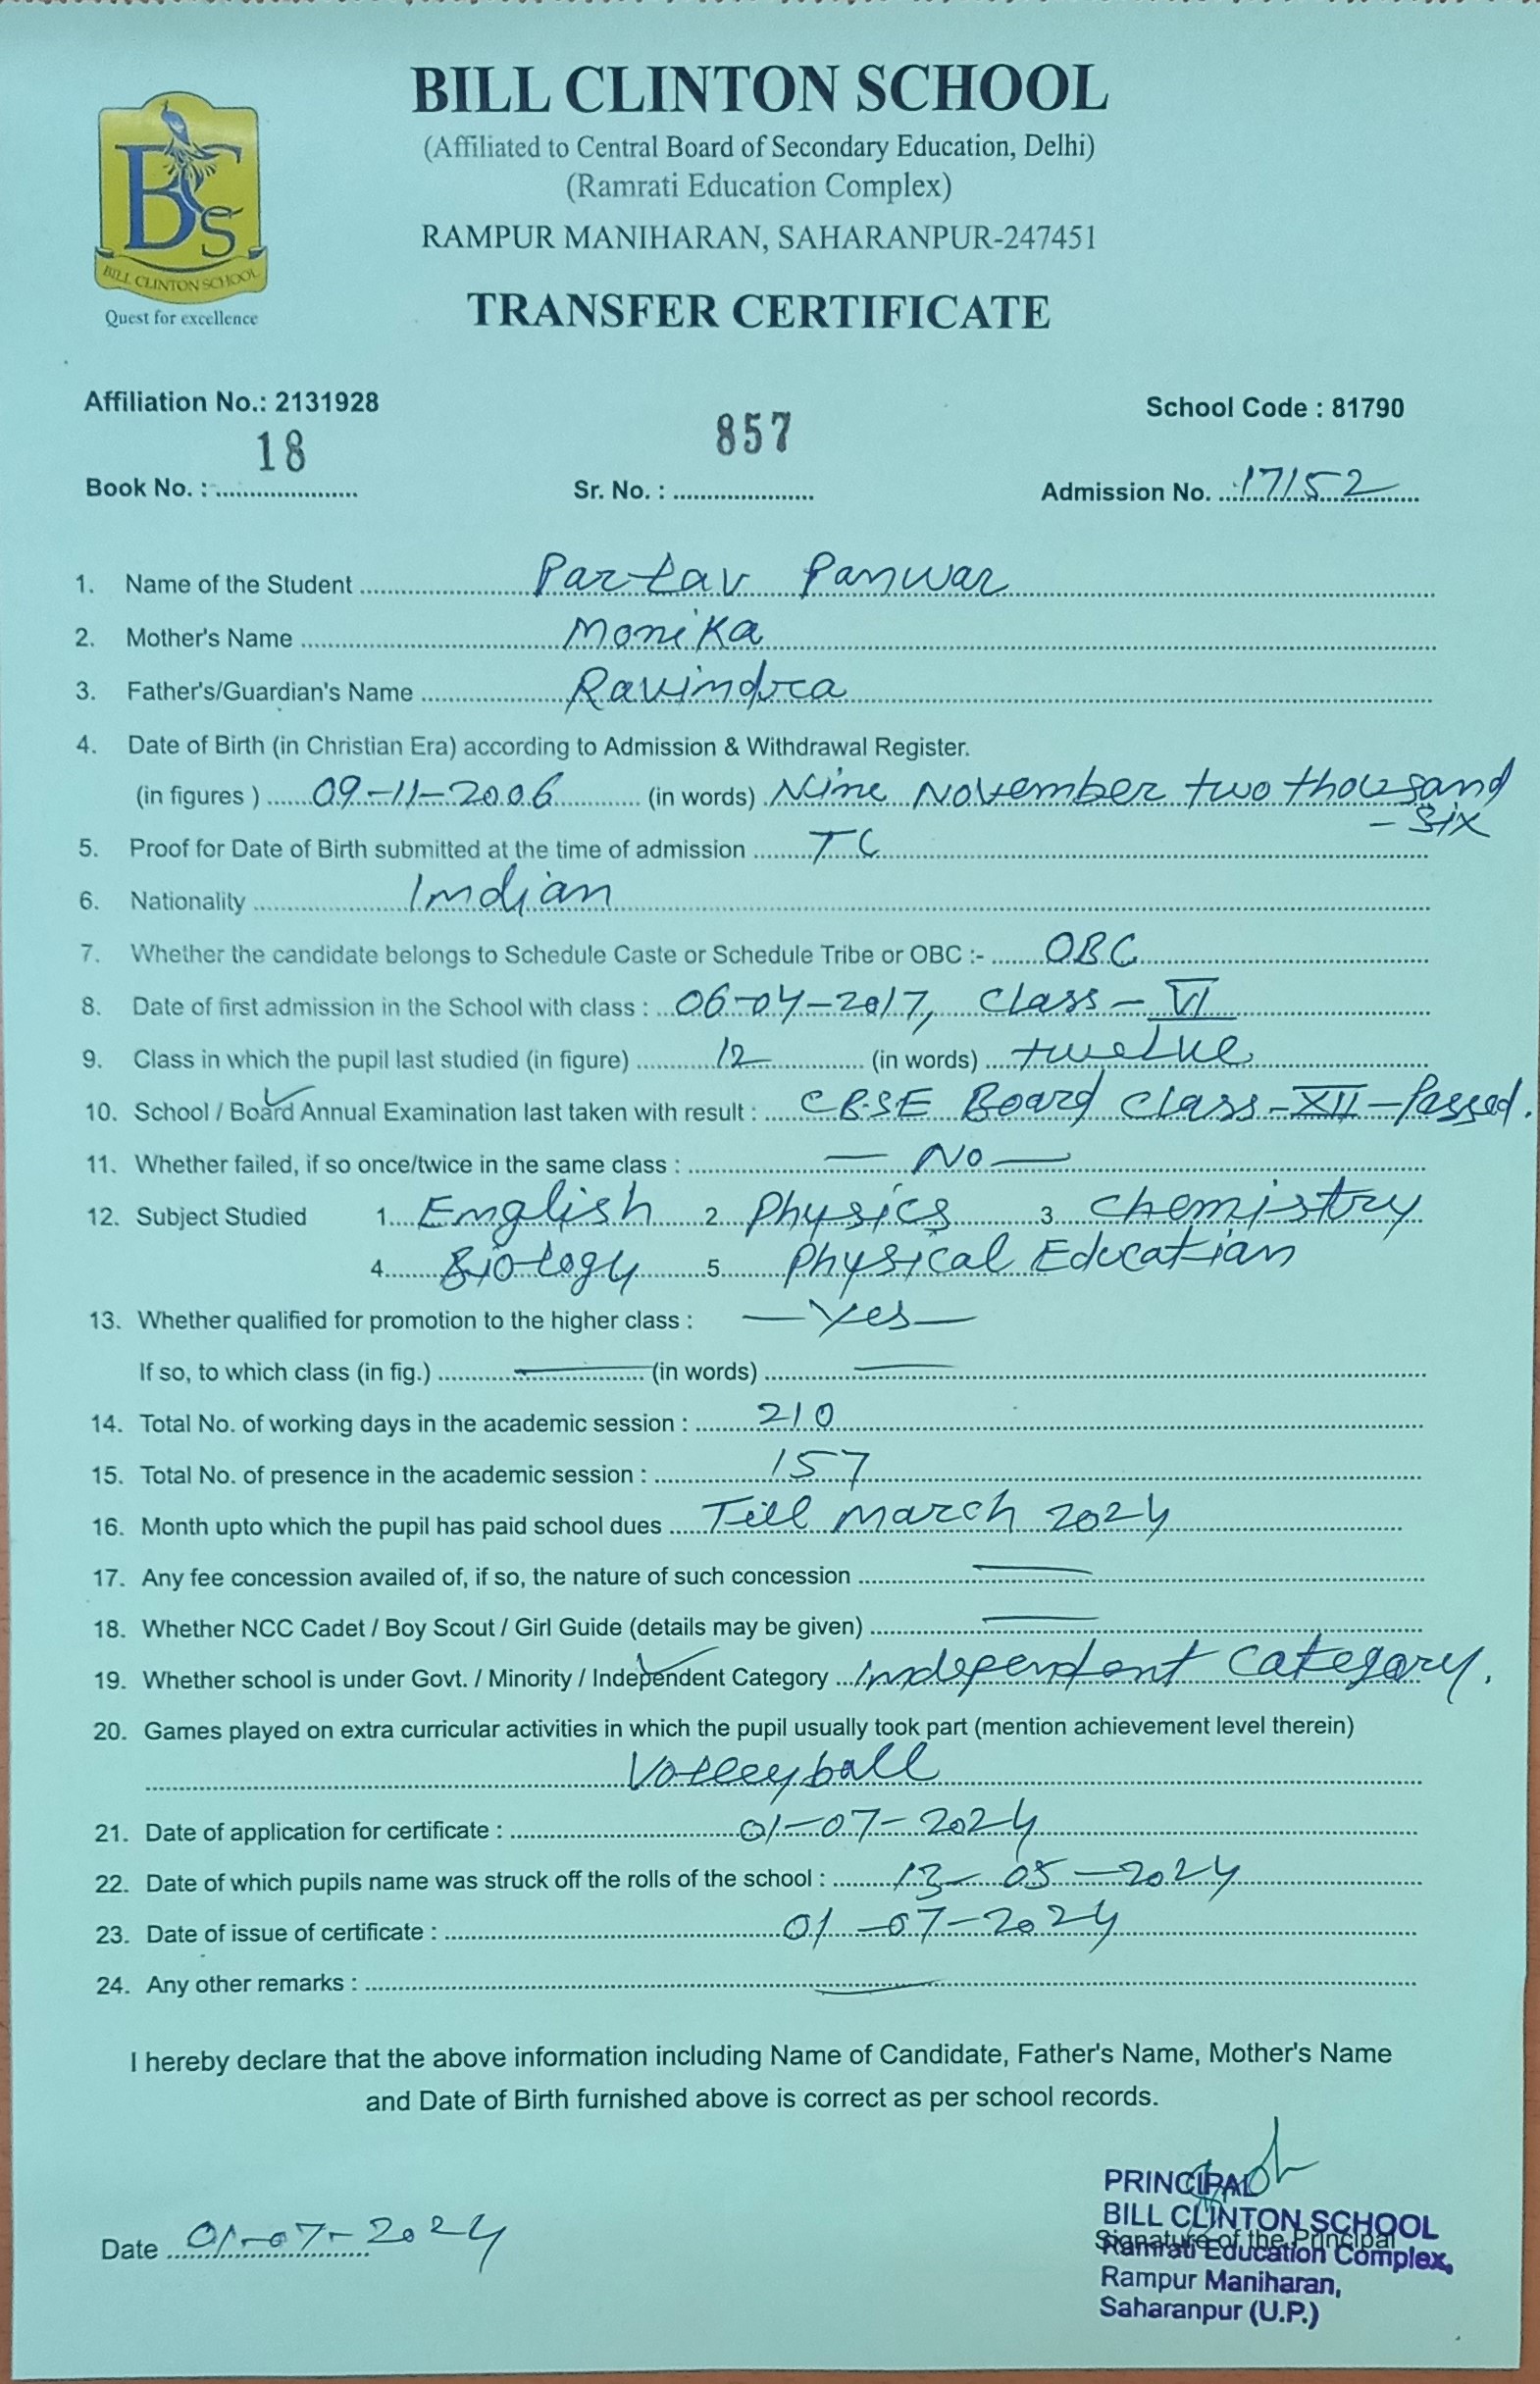 BILL CLINTON SCHOOL
(Affiliated to Central Board of Secondary Education, Delhi)
(Ramrati Education Complex)
RAMPUR MANIHARAN, SAHARANPUR-247451
BCS
BILL CLINTON SCHOOL
Quest for excellence
TRANSFER CERTIFICATE
Affiliation No.: 2131928 School Code : 81790
Book No. : 18 Sr. No. : 857 Admission No. 17152
1. Name of the Student Partav Panwar
2. Mother's Name Monika
3. Father's/Guardian's Name Ravindra
4. Date of Birth (in Christian Era) according to Admission & Withdrawal Register.
(in figures ) 09-11-2006 (in words) Nine November two thousand
- Six
5. Proof for Date of Birth submitted at the time of admission TC
6. Nationality Indian
7. Whether the candidate belongs to Schedule Caste or Schedule Tribe or OBC :- OBC
8. Date of first admission in the School with class : 06-04-2017, Class - VI
9. Class in which the pupil last studied (in figure) 12 (in words) twelve
10. School / Board Annual Examination last taken with result : CBSE Board Class-XII-Passed.
11. Whether failed, if so once/twice in the same class : — No —
12. Subject Studied 1. English 2. Physics 3. Chemistry
4. Biology 5. Physical Education
13. Whether qualified for promotion to the higher class : — Yes —
If so, to which class (in fig.) — (in words) —
14. Total No. of working days in the academic session : 210
15. Total No. of presence in the academic session : 157
16. Month upto which the pupil has paid school dues Till March 2024
17. Any fee concession availed of, if so, the nature of such concession —
18. Whether NCC Cadet / Boy Scout / Girl Guide (details may be given) —
19. Whether school is under Govt. / Minority / Independent Category Independent Category.
20. Games played on extra curricular activities in which the pupil usually took part (mention achievement level therein)
Volleyball
21. Date of application for certificate : 01-07-2024
22. Date of which pupils name was struck off the rolls of the school : 13-05-2024
23. Date of issue of certificate : 01-07-2024
24. Any other remarks : —
I hereby declare that the above information including Name of Candidate, Father's Name, Mother's Name
and Date of Birth furnished above is correct as per school records.
PRINCIPAL
BILL CLINTON SCHOOL
Date 01-07-2024 Signature of the Principal
Ramrati Education Complex,
Rampur Maniharan,
Saharanpur (U.P.)